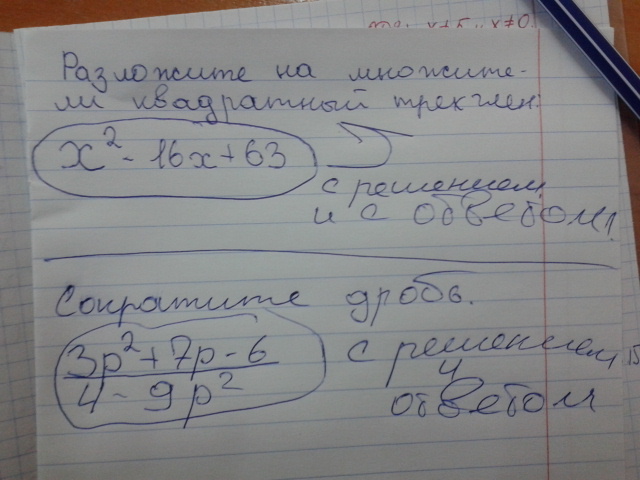 Разложите на множите-
ли квадратный трехчлен:
x² - 16x + 63
с решением
и с ответом!
Сократите дробь.
3p² + 7p - 6
4 - 9p²
с решением
и
ответом